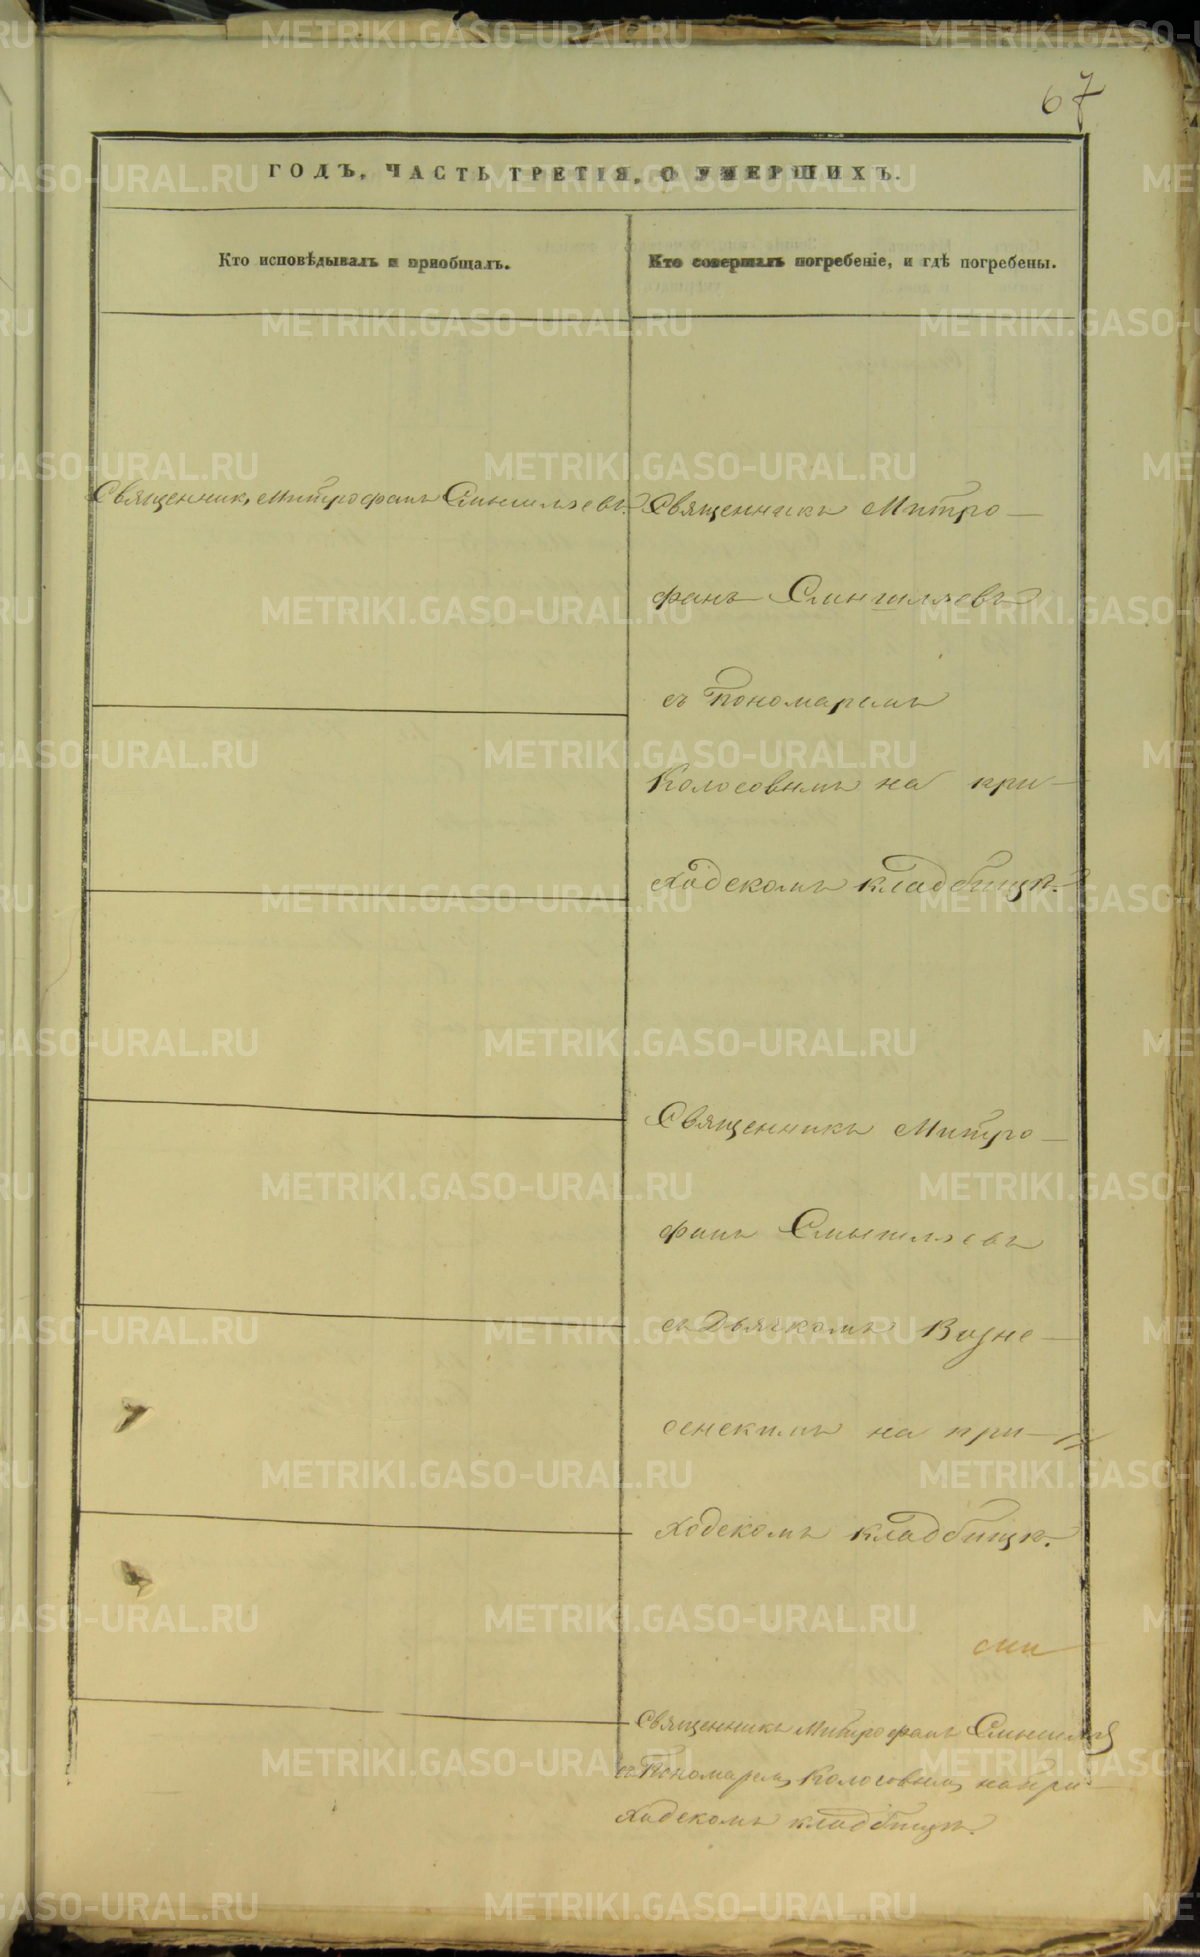 67
ГОДЪ, ЧАСТЬ ТРЕТІЯ, О УМЕРШИХЪ.
Кто исповѣдывалъ и пріобщалъ.
Кто совершалъ погребеніе, и гдѣ погребены.
Священникъ Митрофанъ Смышляевъ.
Священникъ Митро—
фанъ Смышляевъ
съ Пономаремъ
Колосовымъ на при—
ходскомъ кладбищѣ.
Священникъ Митро—
фанъ Смышляевъ
съ Дьячкомъ Возне—
сенскимъ на при—
ходскомъ кладбищѣ.
Священникъ Митрофанъ Смышляев
съ Пономаремъ Колосовымъ на при—
ходскомъ кладбищѣ.
METRIKI.GASO-URAL.RU